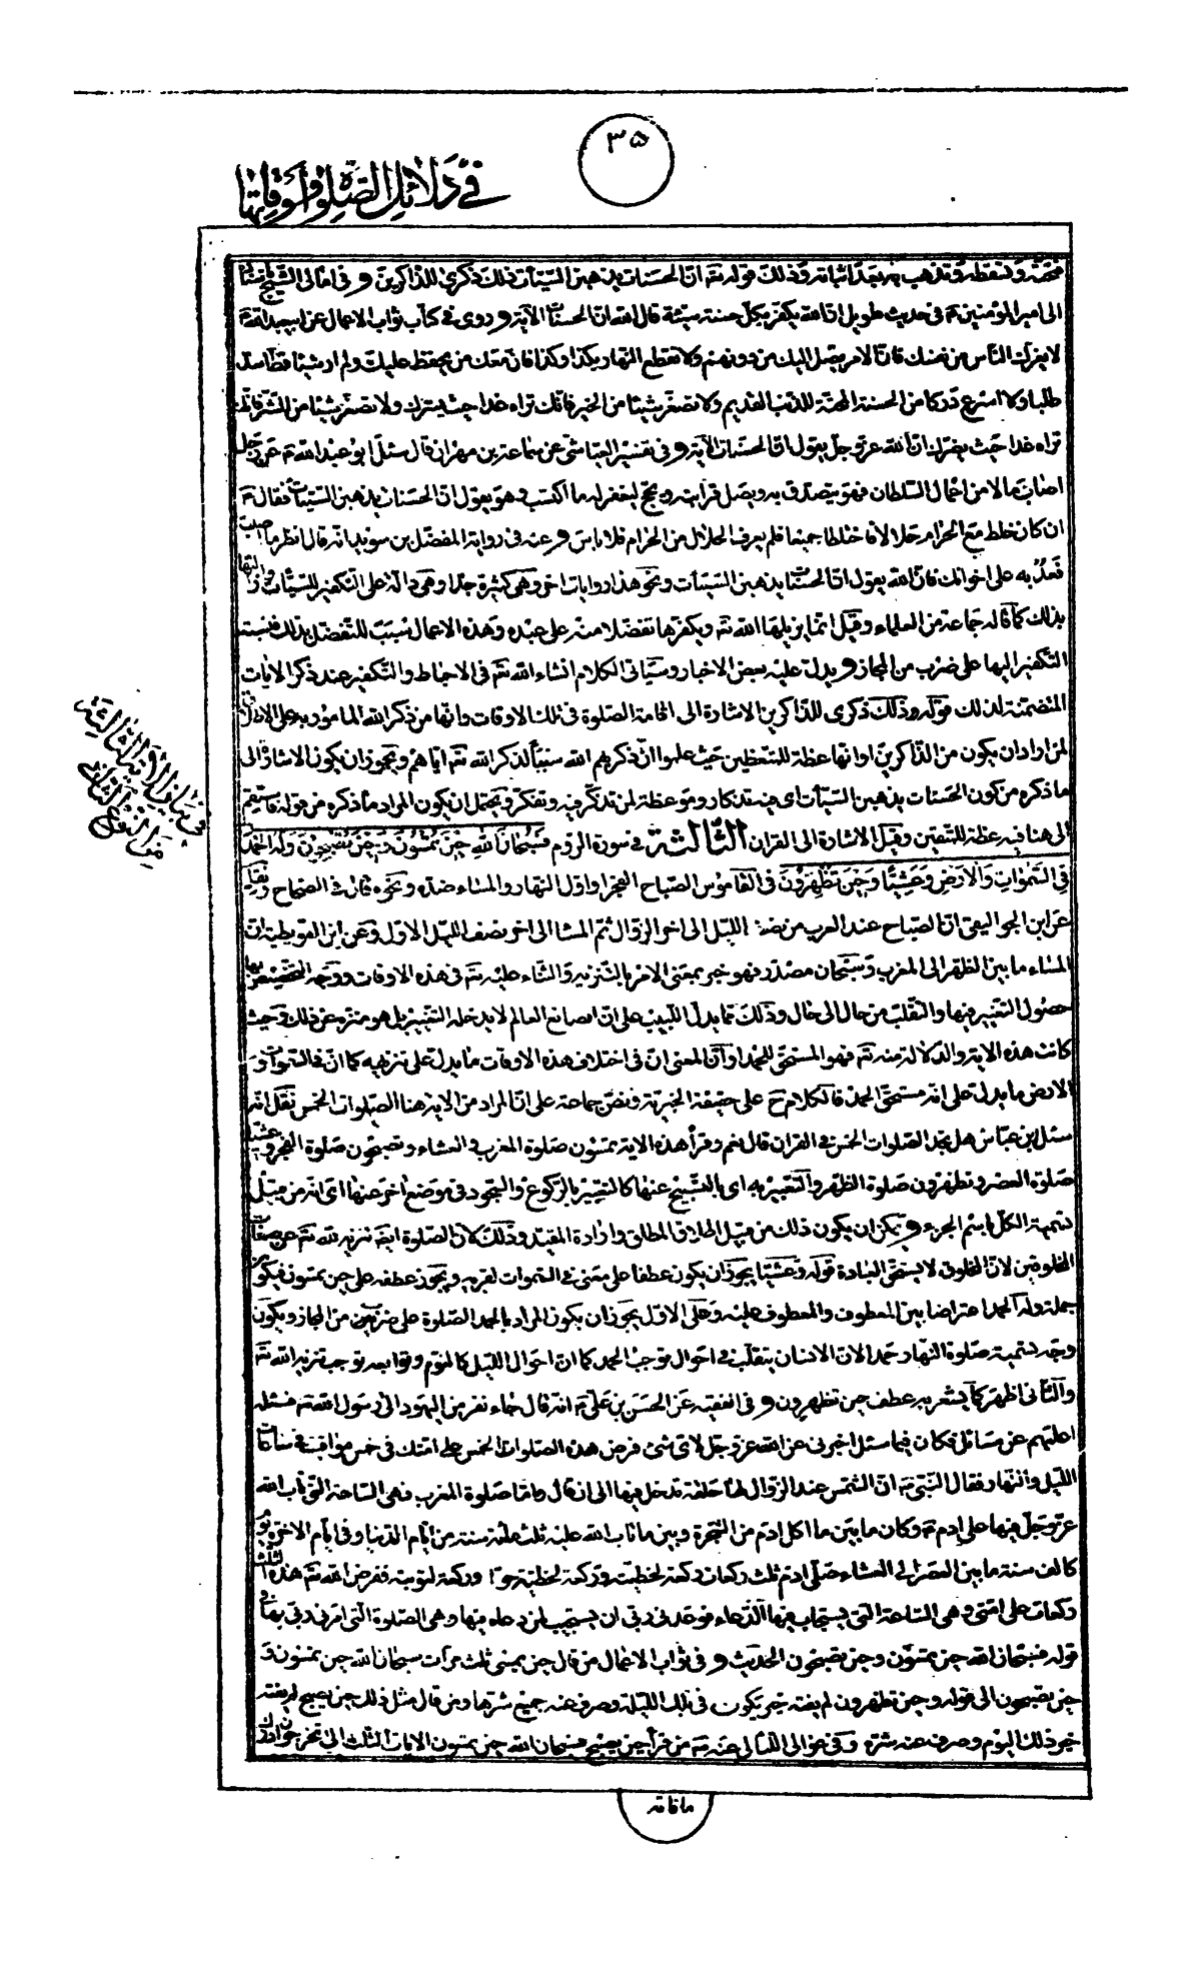 ٣٥
في دلائل الصلوة وأوقاتها
وتسقطه وتذهب به بعد اثباته وذلك قوله تع ان الحسنات يذهبن السيئات ذلك ذكرى للذاكرين و في امالى الشيخ
الى امير المؤمنين ع في حديث طويل ان الله يكفر بكل حسنة سيئة قال الله ان الحسنات الآية و روى في كتاب ثواب الاعمال عن
لا يغرنك الناس من نفسك فان الامر يصل اليك من دونهم ولا تقطع النهار بكذا وكذا فان معك من يحفظ عليك ولم ار شيئا قط اشد
طلبا ولا اسرع دركا من الحسنة للذنب القديم ولا تصغر شيئا من الخير فانك تراه غدا حيث يسرك ولا تصغر شيئا من الشر فانك
تراه غدا حيث يضرك ان الله عز وجل يقول ان الحسنات الآية و في تفسير العياشى عن سماعة بن مهران قال سئل ابو عبد الله ع عن رجل
اصاب مالا من اعمال السلطان فهو يتصدق به ويصل قرابته ويحج ليغفر له ما اكتسب وهو يقول ان الحسنات يذهبن السيئات فقال ع
ان كان خلط مع الحرام حلالا فاختلطا جميعا فلم يعرف الحلال من الحرام فلا باس و عنه في رواية المفضل بن سويد انه قال انظر ما اصبت
فعد به على اخوانك فان الله يقول ان الحسنات يذهبن السيئات ونحو هذا روايات اخر وهي كثيرة جدا وهي دالة على التكفير للسيئات
بذلك كما قاله جماعة من العلماء وقيل انما يزيلها الله تع ويكفرها تفضلا منه على عبده وهذه الاعمال سبب للتفضل بذلك فنسبة
التكفير اليها على ضرب من المجاز و يدل عليه بعض الاخبار وسياتى الكلام انشاء الله تع في الاحباط والتكفير عند ذكر الايات
المتضمنة لذلك قوله وذلك ذكرى للذاكرين الاشارة الى اقامة الصلوة في تلك الاوقات وانها من ذكر الله المامور به على
لمن اراد ان يكون من الذاكرين او انها عظة للمتعظين حيث علموا ان ذكرهم الله سببا لذكر الله تع اياهم ويجوز ان يكون الاشارة الى
ما ذكره من كون الحسنات يذهبن السيئات اى فيه تذكار وموعظة لمن تذكر فيه وتفكر ويحتمل ان يكون المراد ما ذكره من قوله فاستقم
الى هنا فيه عظة للمتقين وقيل الاشارة الى القران الثالثة في سورة الروم فسبحان الله حين تمسون وحين تصبحون وله الحمد
في السموات والارض وعشيا وحين تظهرون في القاموس الصباح الفجر او اول النهار والمساء ضده ونحوه قال في الصحاح ونقل
عن ابن الجواليقى ان الصباح عند العرب من نصف الليل الى اخر الزوال ثم المساء الى اخر نصف الليل الاول وعن ابن القوطية ان
المساء ما بين الظهر الى المغرب وسبحان مصدر فهو خبر بمعنى الامر بالتنزيه والثناء عليه تع في هذه الاوقات ووجه التخصيص بها
حصول التغيير فيها والتقلب من حال الى حال وذلك مما يدل اللبيب على ان لصانع العالم لا يدخله التغيير بل هو منزه عن ذلك وحيث
كانت هذه الاية والدلالة منه تع فهو المستحق للحمد او ان المعنى ان في اختلاف هذه الاوقات ما يدل على تنزيهه كما ان في السموات و
الارض ما يدل على انه مستحق الحمد فالكلام ح على حقيقة الخبرية ونص جماعة على ان المراد من الاية هنا الصلوات الخمس نقل انه
سئل ابن عباس هل تجد الصلوات الخمس في القران قال نعم وقرأ هذه الاية تمسون صلوة المغرب والعشاء وتصبحون صلوة الفجر وعشيا
صلوة العصر وتظهرون صلوة الظهر والتعبير به اى بالتسبيح عنها كالتعبير بالركوع والسجود في موضع اخر عنها اى انه من قبيل
تسمية الكل باسم الجزء و يمكن ان يكون ذلك من قبيل اطلاق المطلق وارادة المقيد وذلك لان الصلوة ايضا تنزيه لله تع عن صفات
المخلوقين لان المخلوق لا يستحق العبادة قوله وعشيا يجوز ان يكون عطفا على متى في السموات لقربه ويجوز عطفه على حين تمسون فيكون
جملة وله الحمد اعتراضا بين المعطوف والمعطوف عليه وعلى الاول يجوز ان يكون المراد بالحمد الصلوة على ضرب من المجاز ويكون
وجه تسمية صلوة النهار حمدا لان الانسان يتقلب في احوال توجب الحمد كما ان احوال الليل كالنوم وتوابعه توجب تنزيه الله تع
والثانى اظهر كما يشعر به عطف حين تظهرون و في الفقيه عن الحسن بن على ع انه قال جاء نفر من اليهود الى رسول الله ص فسئله
اعلمهم عن مسائل فكان فيما سئل اخبرنى عن الله عز وجل لاى شئ فرض هذه الصلوات الخمس على امتك في خمس مواقيت في ساعات
الليل والنهار فقال النبى ص ان الشمس عند الزوال لها حلقة تدخل فيها الى ان قال واما صلوة المغرب فهى الساعة التى تاب الله
عز وجل فيها على ادم ع وكان ما بين ما اكل ادم من الشجرة وبين ما تاب الله عليه ثلث مائة سنة من ايام الدنيا وفي ايام الاخرة يوم
كالف سنة ما بين العصر الى العشاء صلى ادم ثلث ركعات ركعة لخطيئته وركعة لخطيئة حوا وركعة لتوبته ففرض الله تع هذه الثلث
ركعات على امتى وهي الساعة التى يستجاب فيها الدعاء فوعدنى ربى ان يستجيب لمن دعاه فيها وهي الصلوة التى امرنى ربى بها في
قوله فسبحان الله حين تمسون وحين تصبحون الحديث و في ثواب الاعمال من قال حين يمسى ثلث مرات سبحان الله حين تمسون و
حين تصبحون الى قوله وحين تظهرون لم يفته خير يكون في تلك الليلة وصرف عنه جميع شرها ومن قال مثل ذلك حين يصبح لم يفته
خير ذلك اليوم وصرف عنه شره وفي عوالى اللئالى عنه ص من قرأ حين يصبح فسبحان الله حين تمسون الايات الثلث الى تخرجون ادرك
ما فاته
في بيان الاية الثالثة
من النوع الثانى